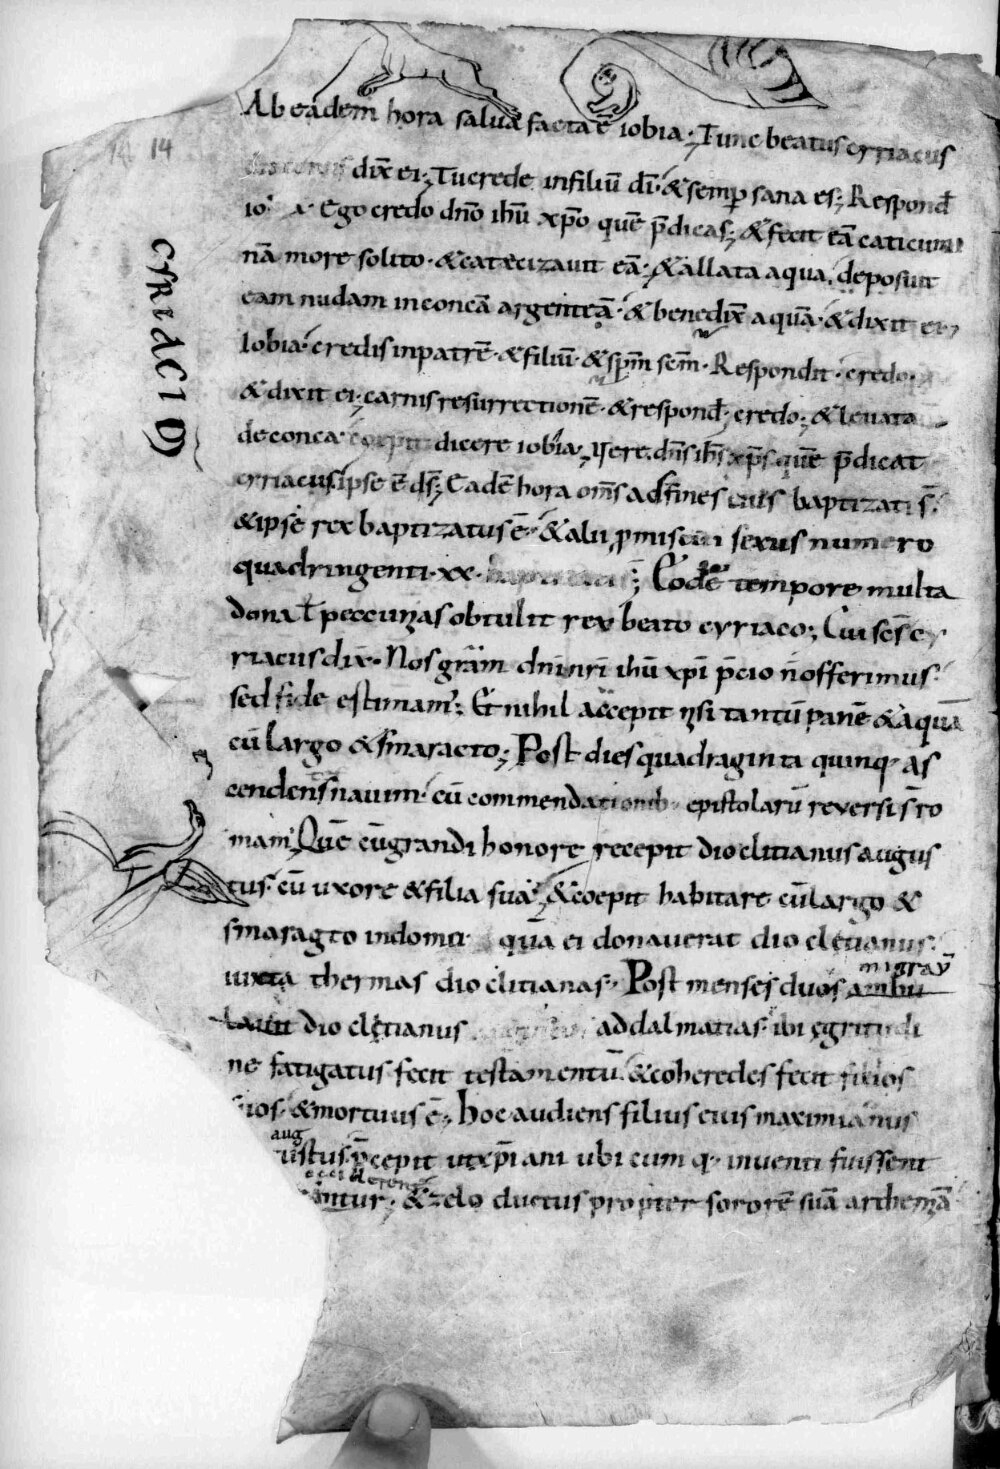 14 14
Ab eadem̄ hora salua facta ē iobia·; Tunc beatus cyriacus
dix̄ ei·; Tu crede in filiū dī· & semp̱ sana es·; Respond̄
io· a· Ego credo dn̄o ihū xp̄o quē p̄dicas·; & fecit eā caticumi
nā more solito· & catecizauit eā·; & allata aqua, deposuit
eam nudam in concā argenteā· & benedix̄ aquā· & dixit ei·
Iobia· credis in patrē· & filiū· & sp̄m sc̄m· Respondit· credo·
& dixit ei·; carnis resurrectionē· & respond̄·; credo·; & leuata
de conca· coepit dicere iobia·; Vere dn̄s ih̄s xp̄s quē p̄dicat
cyriacus ipse ē ds̄·; Eadē hora om̄s adfines eius baptizati s̄·
& ipse rex baptizatus ē· & alii p̱miscui sexus numero
quadringenti·xx· Eodē tempore multa
dona ł peccunias obtulit rex beato cyriaco·; Cui sc̄s cy
riacus dix̄· Nos gr̄am dn̄i nr̄i ihū xp̄i p̄cio n̄ offerimus·
sed fide estimam·; Et nihil accepit nisi tantū panē & aquā
cū largo & smaracto·; Post dies quadraginta quinq· as
cendens nauim· cū commendationib· epistolarū reversi s̄ ro
mam·; Quē cū grandi honore recepit dioclitianus augus
tus· cū uxore & filia sua·; & coepit habitare cū largo &
smaragto in domu quā ei donauerat diocletianus·
iuxta thermas dioclitianas· Post menses duos ambu
migrav̄
lauit diocletianus ad dalmatias· ibi ęgritudi
ne fatigatus fecit testamentū· & coheredes fecit filios
suos· & mortuus ē·; hoc audiens filius eius maximianus
aug
ustus p̄cepit ut xp̄iani ubicumq· inventi fuissent
occiderent
antur·; & zelo ductus propter sororē suā arthemiā
cyriaci